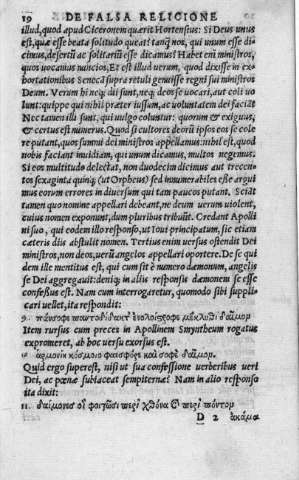 19 DE FALSA RELIGIONE
illud, quod apud Ciceronem quærit Hortensius: Si Deus unus
est, quæ esse beata solitudo queat? tanq̃ nos, qui unum esse di
cimus, desertũ ac solitariũ esse dicamus? Habet eni ministros,
quos uocamus nuncios, Et est illud uerum, quod dixisse in ex
hortationibus Senecã supra retuli genuisse regni sui ministros
Deum. Verum hi neq; dii sunt, neq; deos se uocari, aut coli uo
lunt: quippe qui nihil præter iussum, ac uoluntatem dei faciãt
Nec tamen illi sunt, qui uulgo coluntur: quorum & exiguus,
& certus est numerus. Quod si cultores deorũ ipsos eos se cole
re putant, quos summi dei ministros appellamus: nihil est, quod
nobis faciant inuidiam, qui unum dicamus, multos negemus.
Si eos multitudo delectat, non duodecim dicimus aut trecen
tos sexaginta quinq; (ut Orpheus) sed innumerabiles esse argui
mus eorum errores in diuersum qui tam paucos putant, Sciãt
tamen quo nomine appellari debeant, ne deum uerum uiolent,
cuius nomen exponunt, dum pluribus tribuũt. Credant Apolli
ni suo, qui eodem illo responso, ut Ioui principatum, sic etiam
cæteris diis abstulit nomen. Tertius enim uersus ostendit Dei
ministros, non deos, uerũ angelos appellari oportere. De se qui
dem ille mentitus est, qui cum sit è numero dæmonum, angelis
se Dei aggregauit: deniq; in aliis responsis dæmonem se esse
confessus est. Nam cum interrogaretur, quomodo sibi suppli
cari uellet, ita respondit:
9. πάνσοφε παντοδίδακτ' ἐνολοίσροφε κέκλυθι δαῖμον
Item rursus cum preces in Apollinem Smyntheum rogatus
expromeret, ab hoc uersu exorsus est.
10. ἁρμονίη κόσμοιο φαεσφόρε καὶ σοφὲ δαῖμον.
Quid ergo superest, nisi ut sua confessione uerberibus ueri
Dei, ac pœnæ subiaceat sempiternæ? Nam in alio responso
ita dixit:
11. δαίμονες οἱ φοιτῶσι περὶ χθόνα & περὶ πόντον
D 2 ἀκάμα